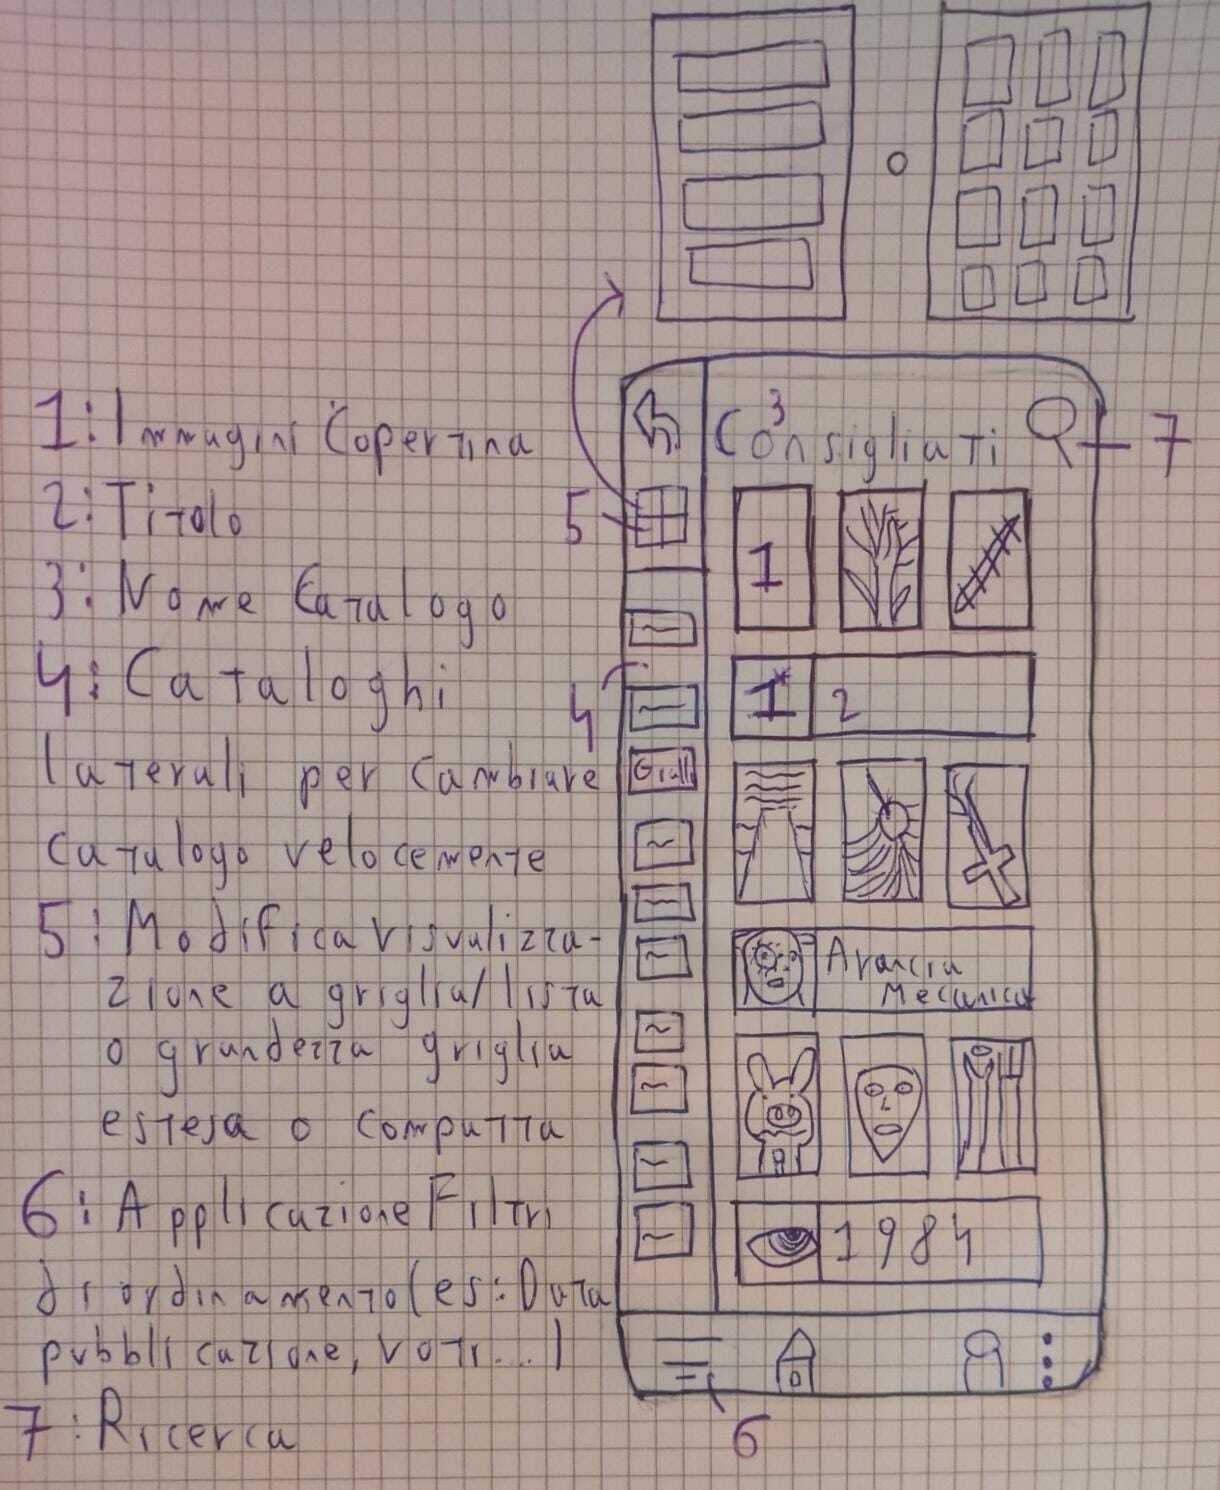 1: Immagini Copertina
2: Titolo
3: Nome Catalogo
4: Cataloghi
laterali per cambiare
catalogo velocemente
5: Modifica visualizza-
zione a griglia/lista
o grandezza griglia
estesa o compatta
6: Applicazione Filtri
di ordinamento (es: Data
pubblicazione, voti...)
7: Ricerca
o
3
Consigliati
7
5
1
4
1* 2
Gialli
Arancia
Meccanica
1984
6